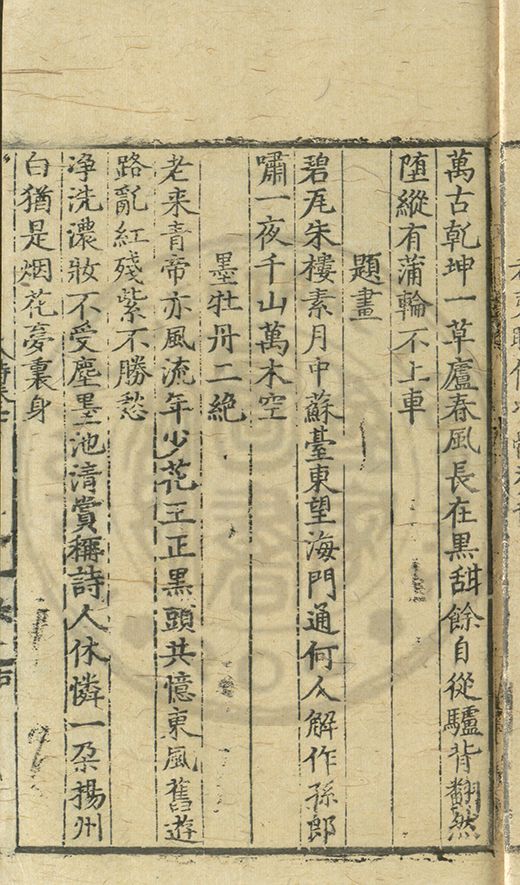 萬古乾坤一草廬春風長在黒甜餘自從驢背翻然
堕縱有蒲輪不上車
題畫
碧瓦朱樓素月中蘇臺東望海門通何人解作孫郎
嘯一夜千山萬木空
墨牡丹二絶
老来青帝亦風流年少花王正黒頭共憶東風舊遊
路亂紅殘紫不勝愁
浄洗濃妝不受塵墨池清賞稱詩人休憐一朶揚州
白猶是烟花夢裏身